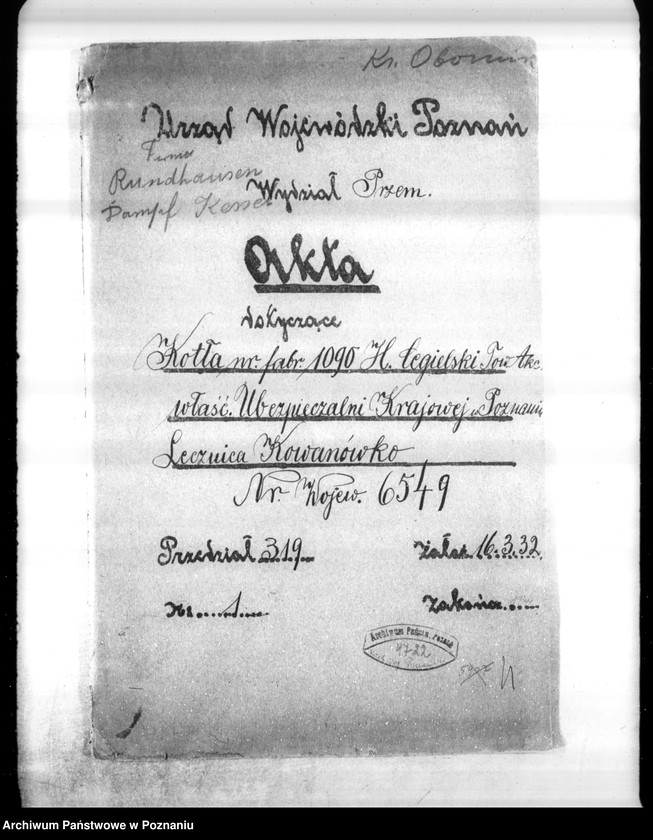 Kr. Obornik
Urząd Wojewódzki Poznań
Firma
Rundhausen
Dampf Kessel
Wydział Przem.
Akta
dotyczące
Kotła nr. fabr. 1090 H. Cegielski Tow Akc.
właść. Ubezpieczalni Krajowej w Poznaniu
Lecznica Kowanówko
Nr Wojew. 6549
Przedział 319
Założ. 16.3.32.
Nr. 1
Zakończ.
Archiwum Państw. Poznań
4722
Archiwum Państwowe w Poznaniu